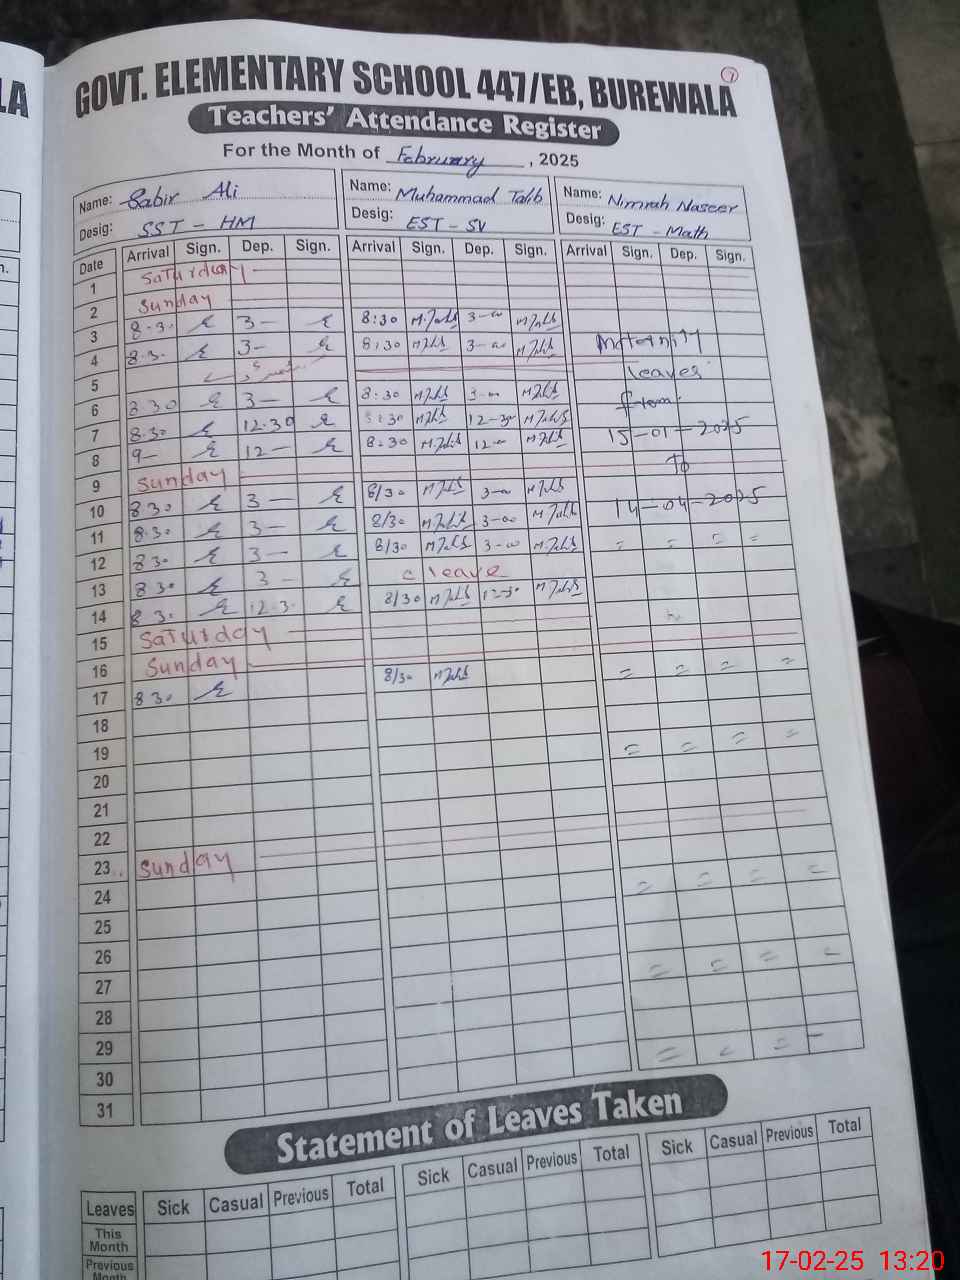 GOVT. ELEMENTARY SCHOOL 447/EB, BUREWALA
Teachers' Attendance Register
For the Month of February, 2025
Name: Sabir Ali Name: Muhammad Talib Name: Nimrah Naseer
Desig: SST - HM Desig: EST - SV Desig: EST - Math
Date Arrival Sign. Dep. Sign. Arrival Sign. Dep. Sign. Arrival Sign. Dep. Sign.
1 Saturday
2 Sunday
3 8.30 3- 8:30 M.Talib 3-00 M.Talib
4 8.30 3- 8:30 M Talib 3-00 M Talib Maternity
5 leaves
6 8 30 3- 8:30 M Talib 3-00 M Talib from
7 8.30 12.30 8:30 M Talib 12-30 M Talib 15-01-2025
8 9- 12- 8:30 M Talib 12-00 M Talib To
9 Sunday
10 8 30 3- 8/30 M Talib 3-00 M Talib 14-04-2025
11 8.30 3- 8/30 M Talib 3-00 M Talib
12 8 30 3- 8/30 M Talib 3-00 M Talib = = = =
13 8 30 3- c leave
14 8 30 12.30 8/30 M Talib 12-30 M Talib
15 Saturday
16 Sunday
17 8 30 8/30 M Talib = = = =
18
19 = = = =
20
21
22
23 Sunday
24 = = = =
25
26
27 = = = =
28
29
30 = = = =
31
Statement of Leaves Taken
Leaves Sick Casual Previous Total Sick Casual Previous Total Sick Casual Previous Total
This Month
Previous Month
17-02-25 13:20